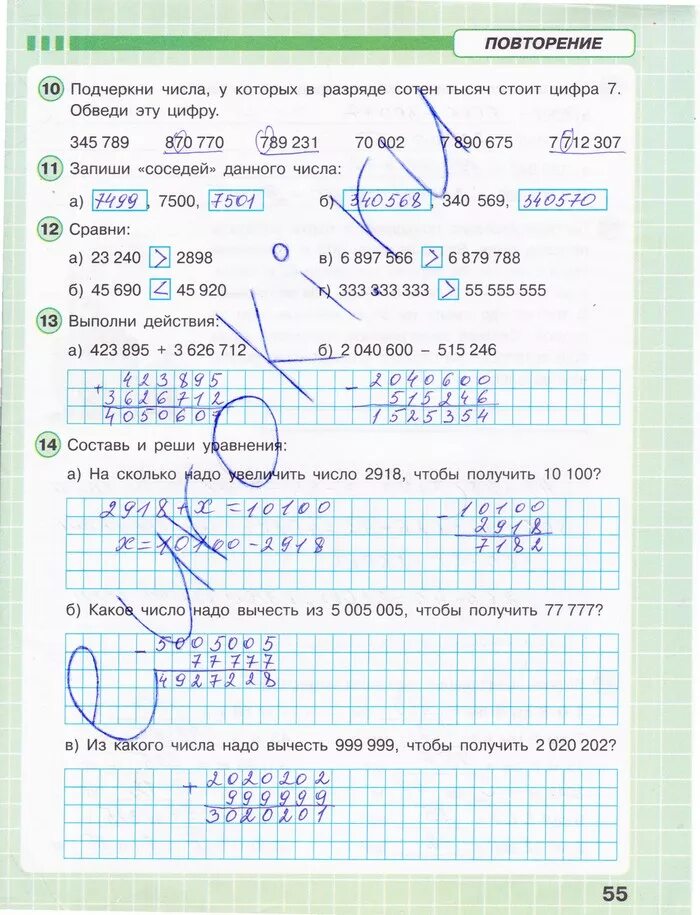 ПОВТОРЕНИЕ
10 Подчеркни числа, у которых в разряде сотен тысяч стоит цифра 7.
Обведи эту цифру.
345 789 870 770 789 231 70 002 7 890 675 7 712 307
11 Запиши «соседей» данного числа:
а) 7499, 7500, 7501 б) 340568, 340 569, 340570
12 Сравни:
а) 23 240 > 2898 в) 6 897 566 > 6 879 788
б) 45 690 < 45 920 г) 333 333 333 > 55 555 555
13 Выполни действия:
а) 423 895 + 3 626 712 б) 2 040 600 − 515 246
+ 423895 − 2040600
3626712 515246
4050607 1525354
14 Составь и реши уравнения:
а) На сколько надо увеличить число 2918, чтобы получить 10 100?
2918 + x = 10100 − 10100
2918
x = 10100 − 2918 7182
б) Какое число надо вычесть из 5 005 005, чтобы получить 77 777?
− 5005005
77777
4927228
в) Из какого числа надо вычесть 999 999, чтобы получить 2 020 202?
+ 2020202
999999
3020201
55